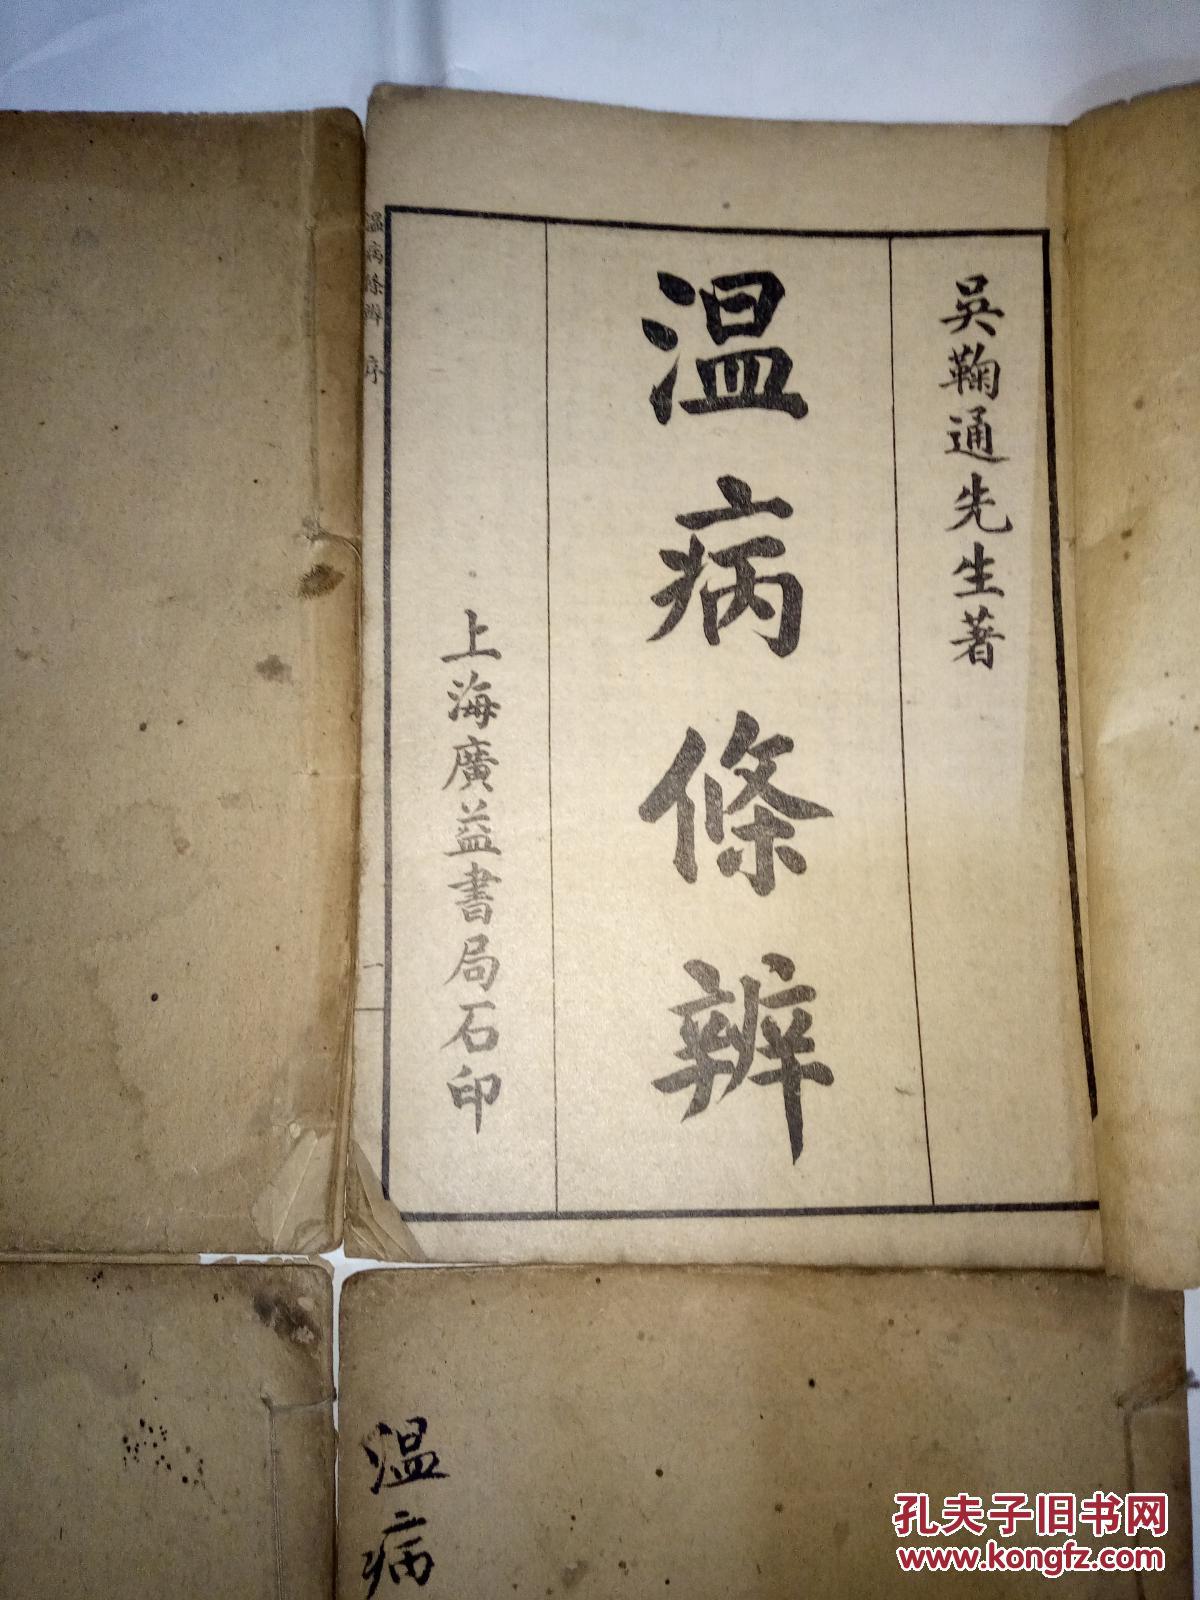 吳鞠通先生著
温病條辨
上海廣益書局石印
温病條辨 序 一
温病
孔夫子旧书网
www.kongfz.com